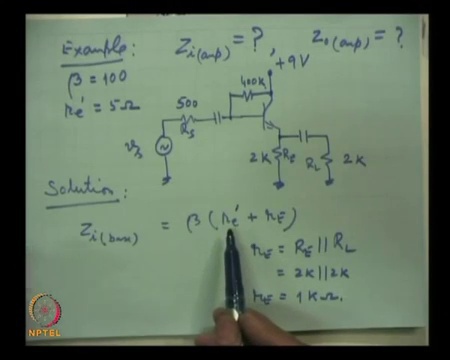 Example: Zi(amp) = ?, Zo(amp) = ?
β = 100
re' = 5Ω
+9V
400K
500
RS
vs
2K RE
RL 2K
Solution:
Zi(base) = β (re' + rE)
rE = RE || RL
= 2K || 2K
rE = 1 KΩ.
NPTEL